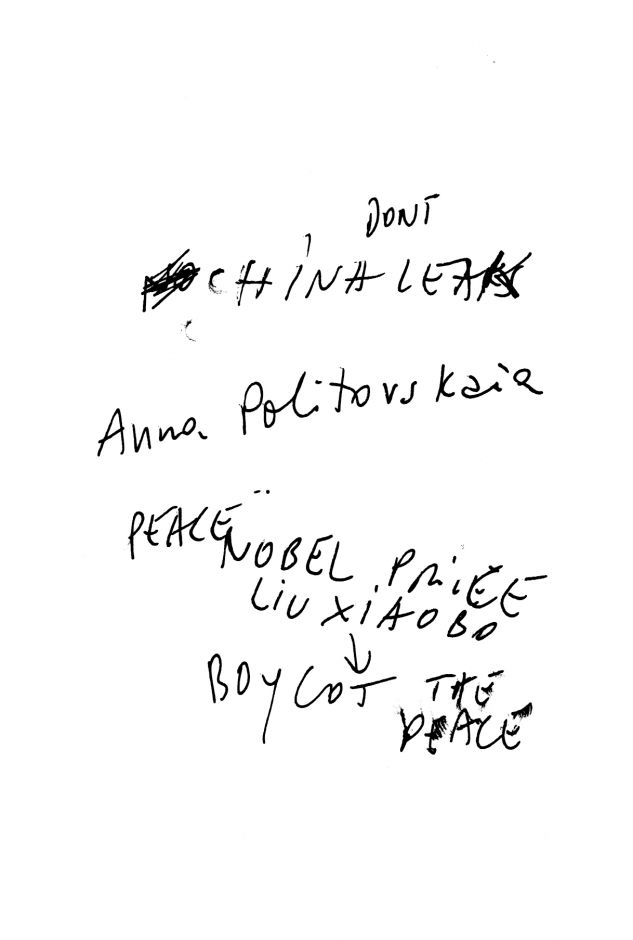 DONT
CHINA LEAKS
Anna Politovskaia
PEACE NOBEL PRICE
LIU XIAOBO
↓
BOYCOT THE
PEACE